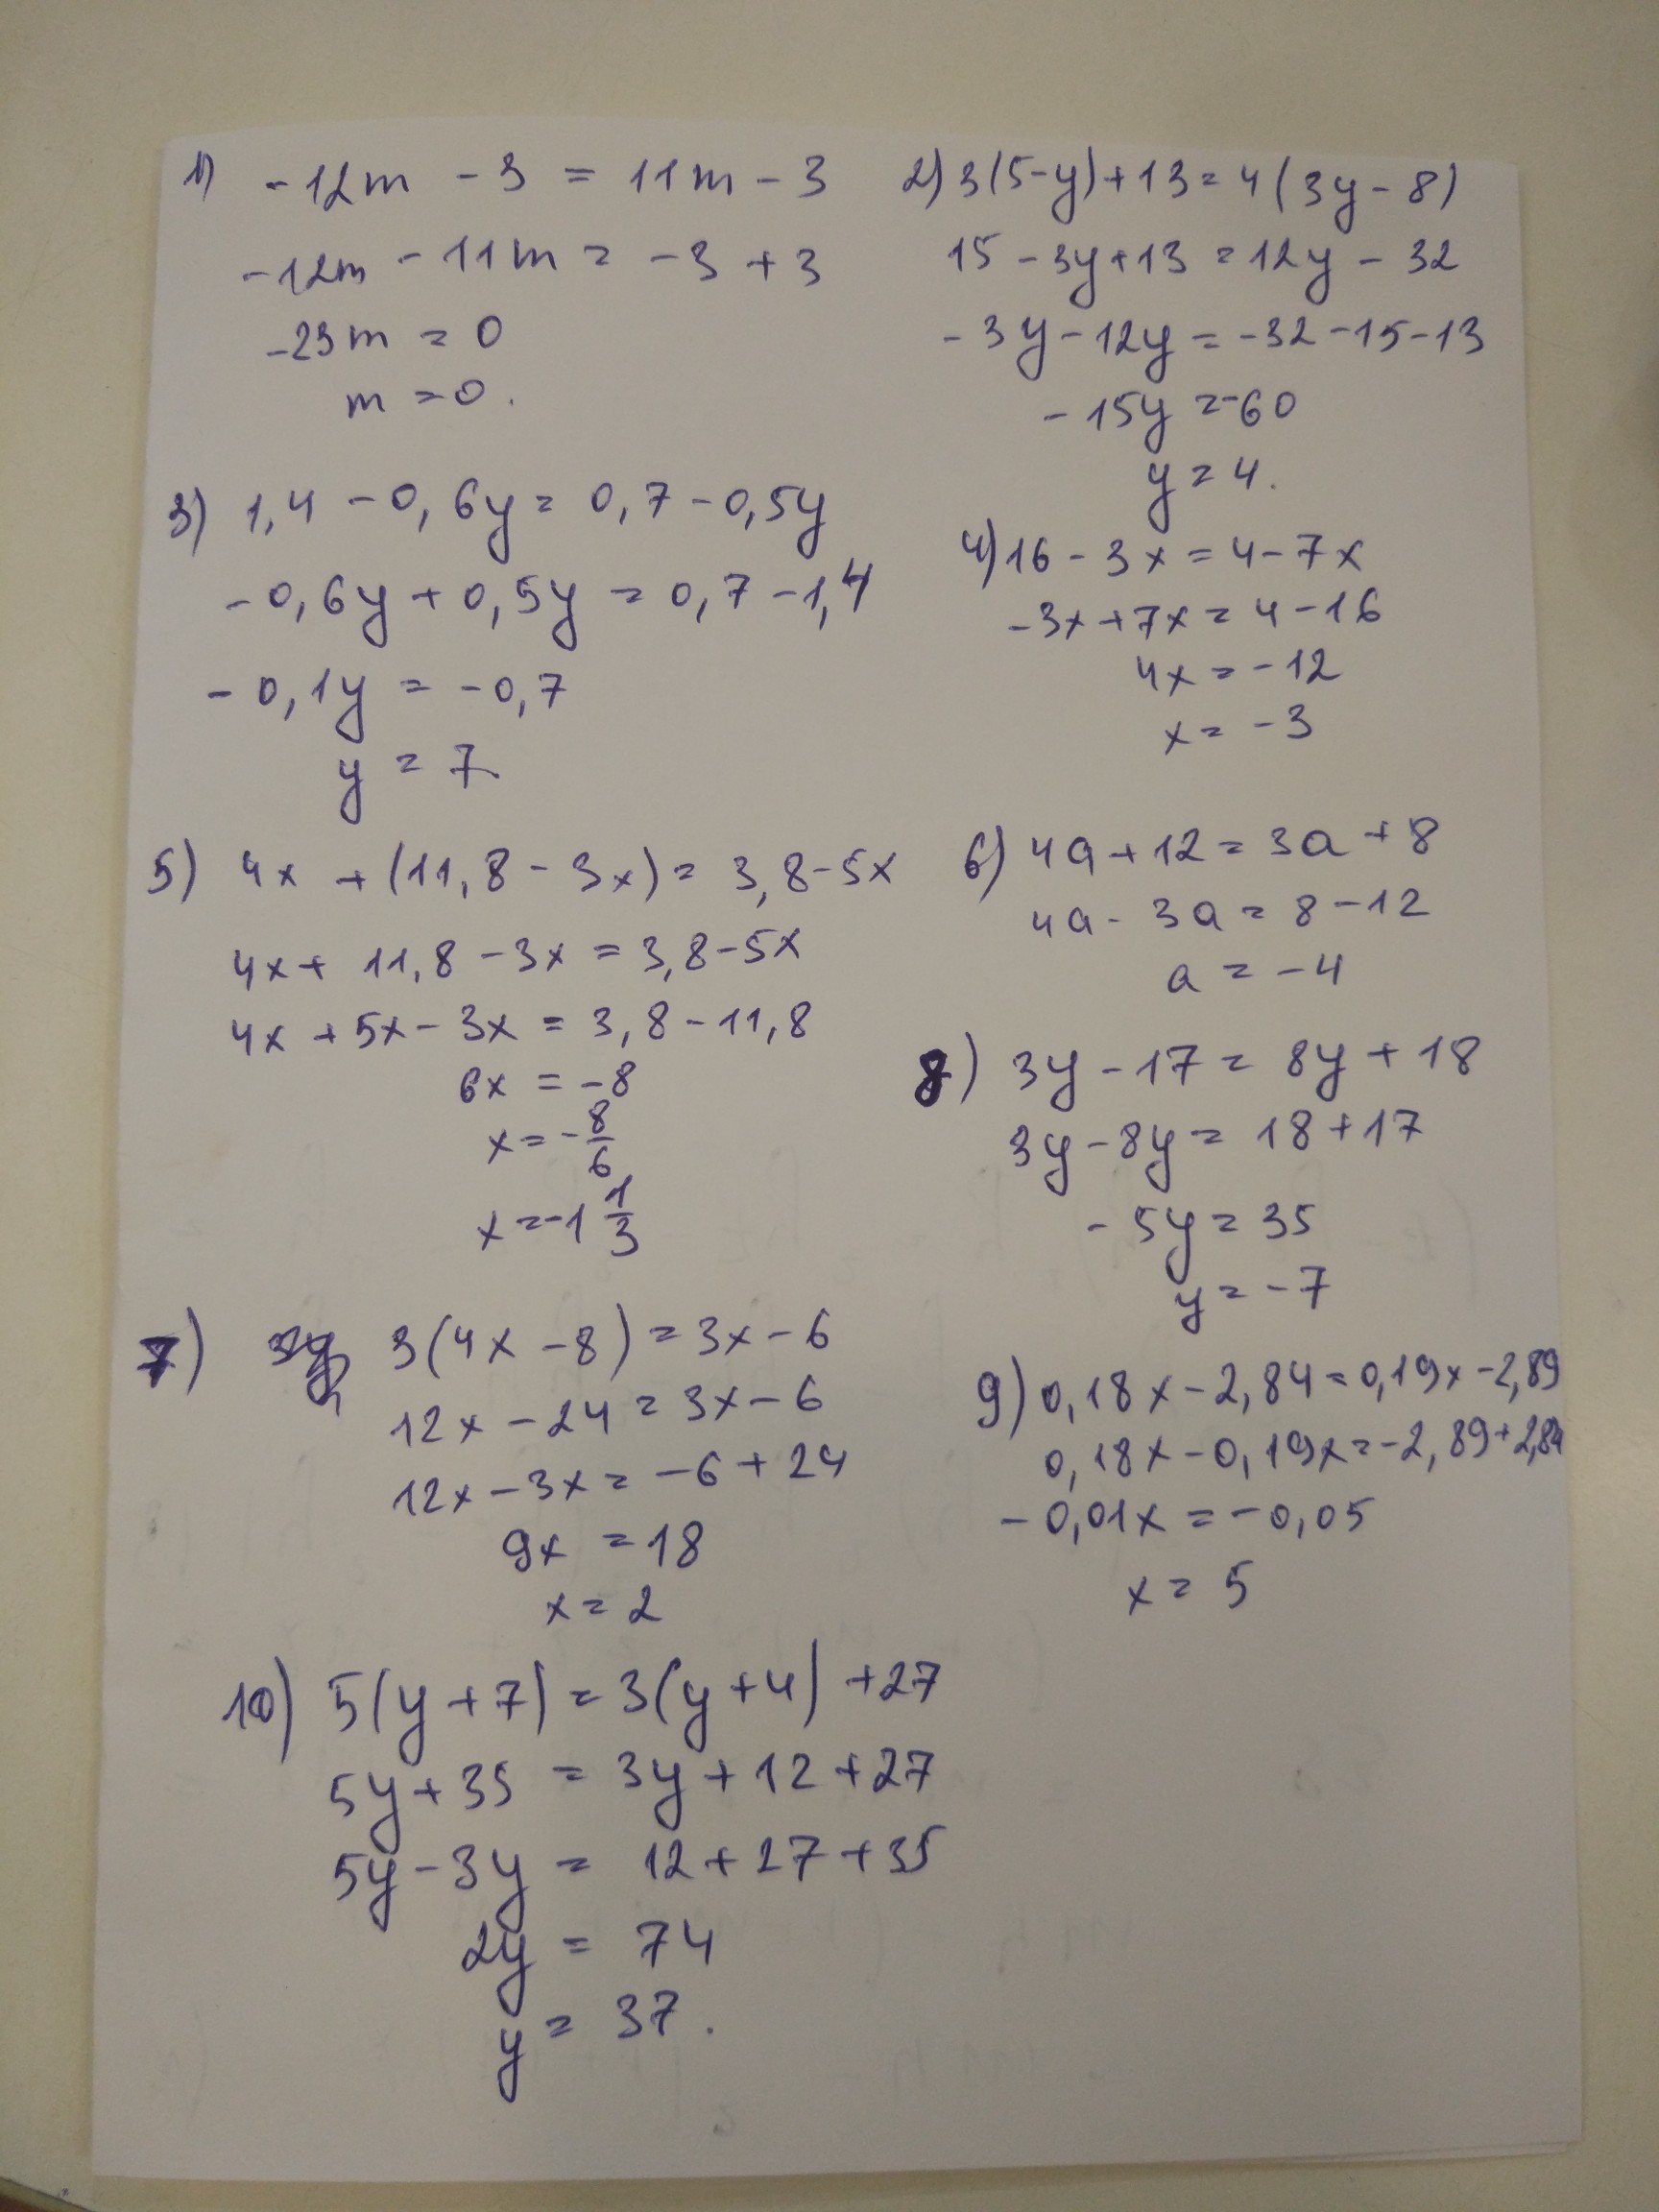 1) -12m - 3 = 11m - 3
-12m - 11m = -3 + 3
-23m = 0
m = 0.
2) 3(5-y)+13 = 4(3y-8)
15 - 3y+13 = 12y - 32
-3y - 12y = -32 - 15 - 13
-15y = -60
y = 4.
3) 1,4 - 0,6y = 0,7 - 0,5y
-0,6y + 0,5y = 0,7 - 1,4
-0,1y = -0,7
y = 7
4) 16 - 3x = 4 - 7x
-3x + 7x = 4 - 16
4x = -12
x = -3
5) 4x + (11,8 - 3x) = 3,8 - 5x
4x + 11,8 - 3x = 3,8 - 5x
4x + 5x - 3x = 3,8 - 11,8
6x = -8
x = -8/6
x = -1 1/3
6) 4a + 12 = 3a + 8
4a - 3a = 8 - 12
a = -4
8) 3y - 17 = 8y + 18
3y - 8y = 18 + 17
-5y = 35
y = -7
7) 3(4x - 8) = 3x - 6
12x - 24 = 3x - 6
12x - 3x = -6 + 24
9x = 18
x = 2
9) 0,18x - 2,84 = 0,19x - 2,89
0,18x - 0,19x = -2,89 + 2,84
-0,01x = -0,05
x = 5
10) 5(y + 7) = 3(y + 4) + 27
5y + 35 = 3y + 12 + 27
5y - 3y = 12 + 27 + 35
2y = 74
y = 37.